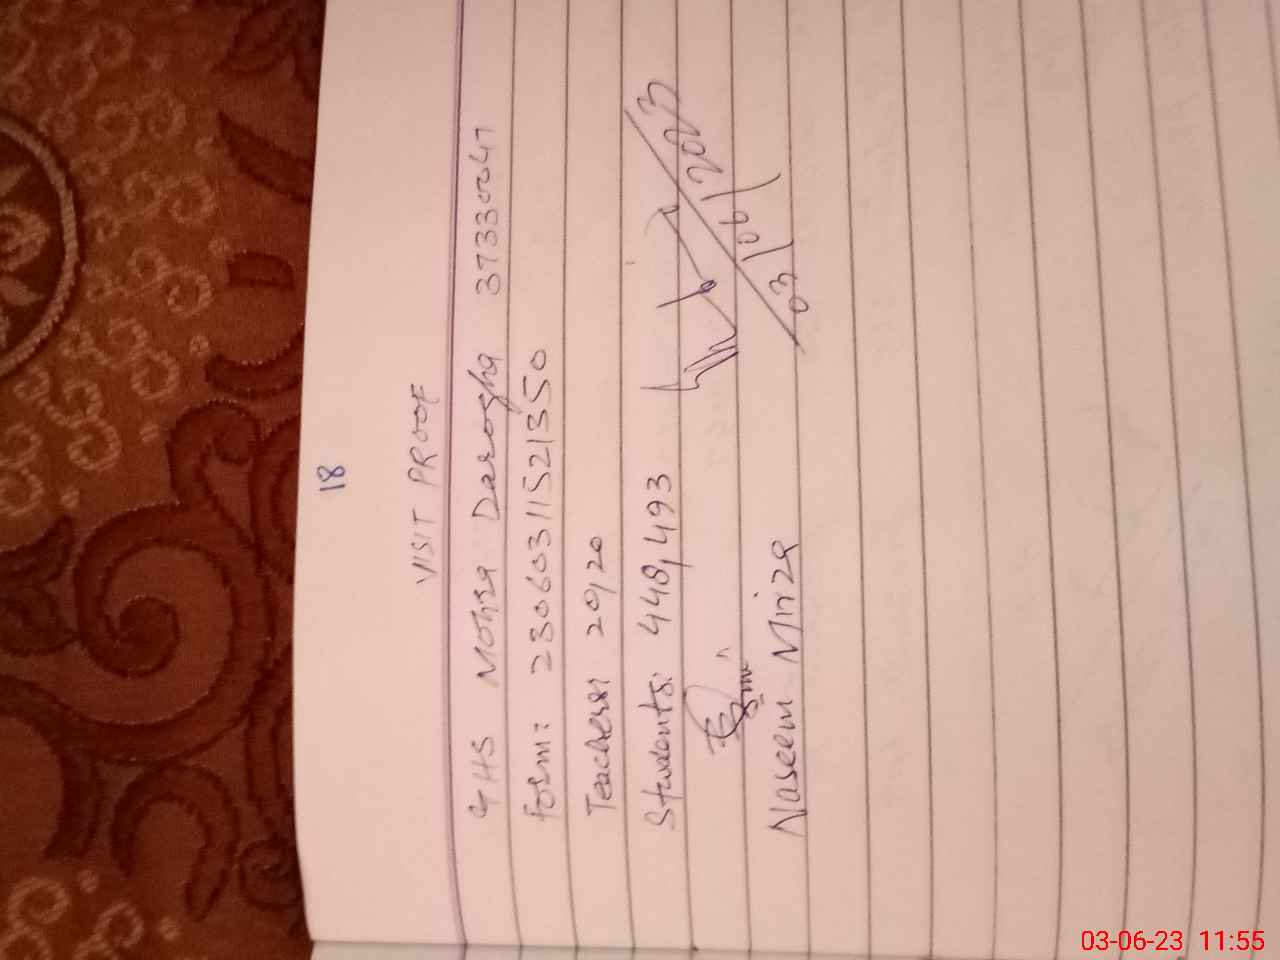 18
VISIT PROOF
GHS Mohra Darogha 37330047
Form: 230603115521350
Teachers: 20/20
Students: 448, 493
03/06/2023
Naseem Mirza
03-06-23 11:55